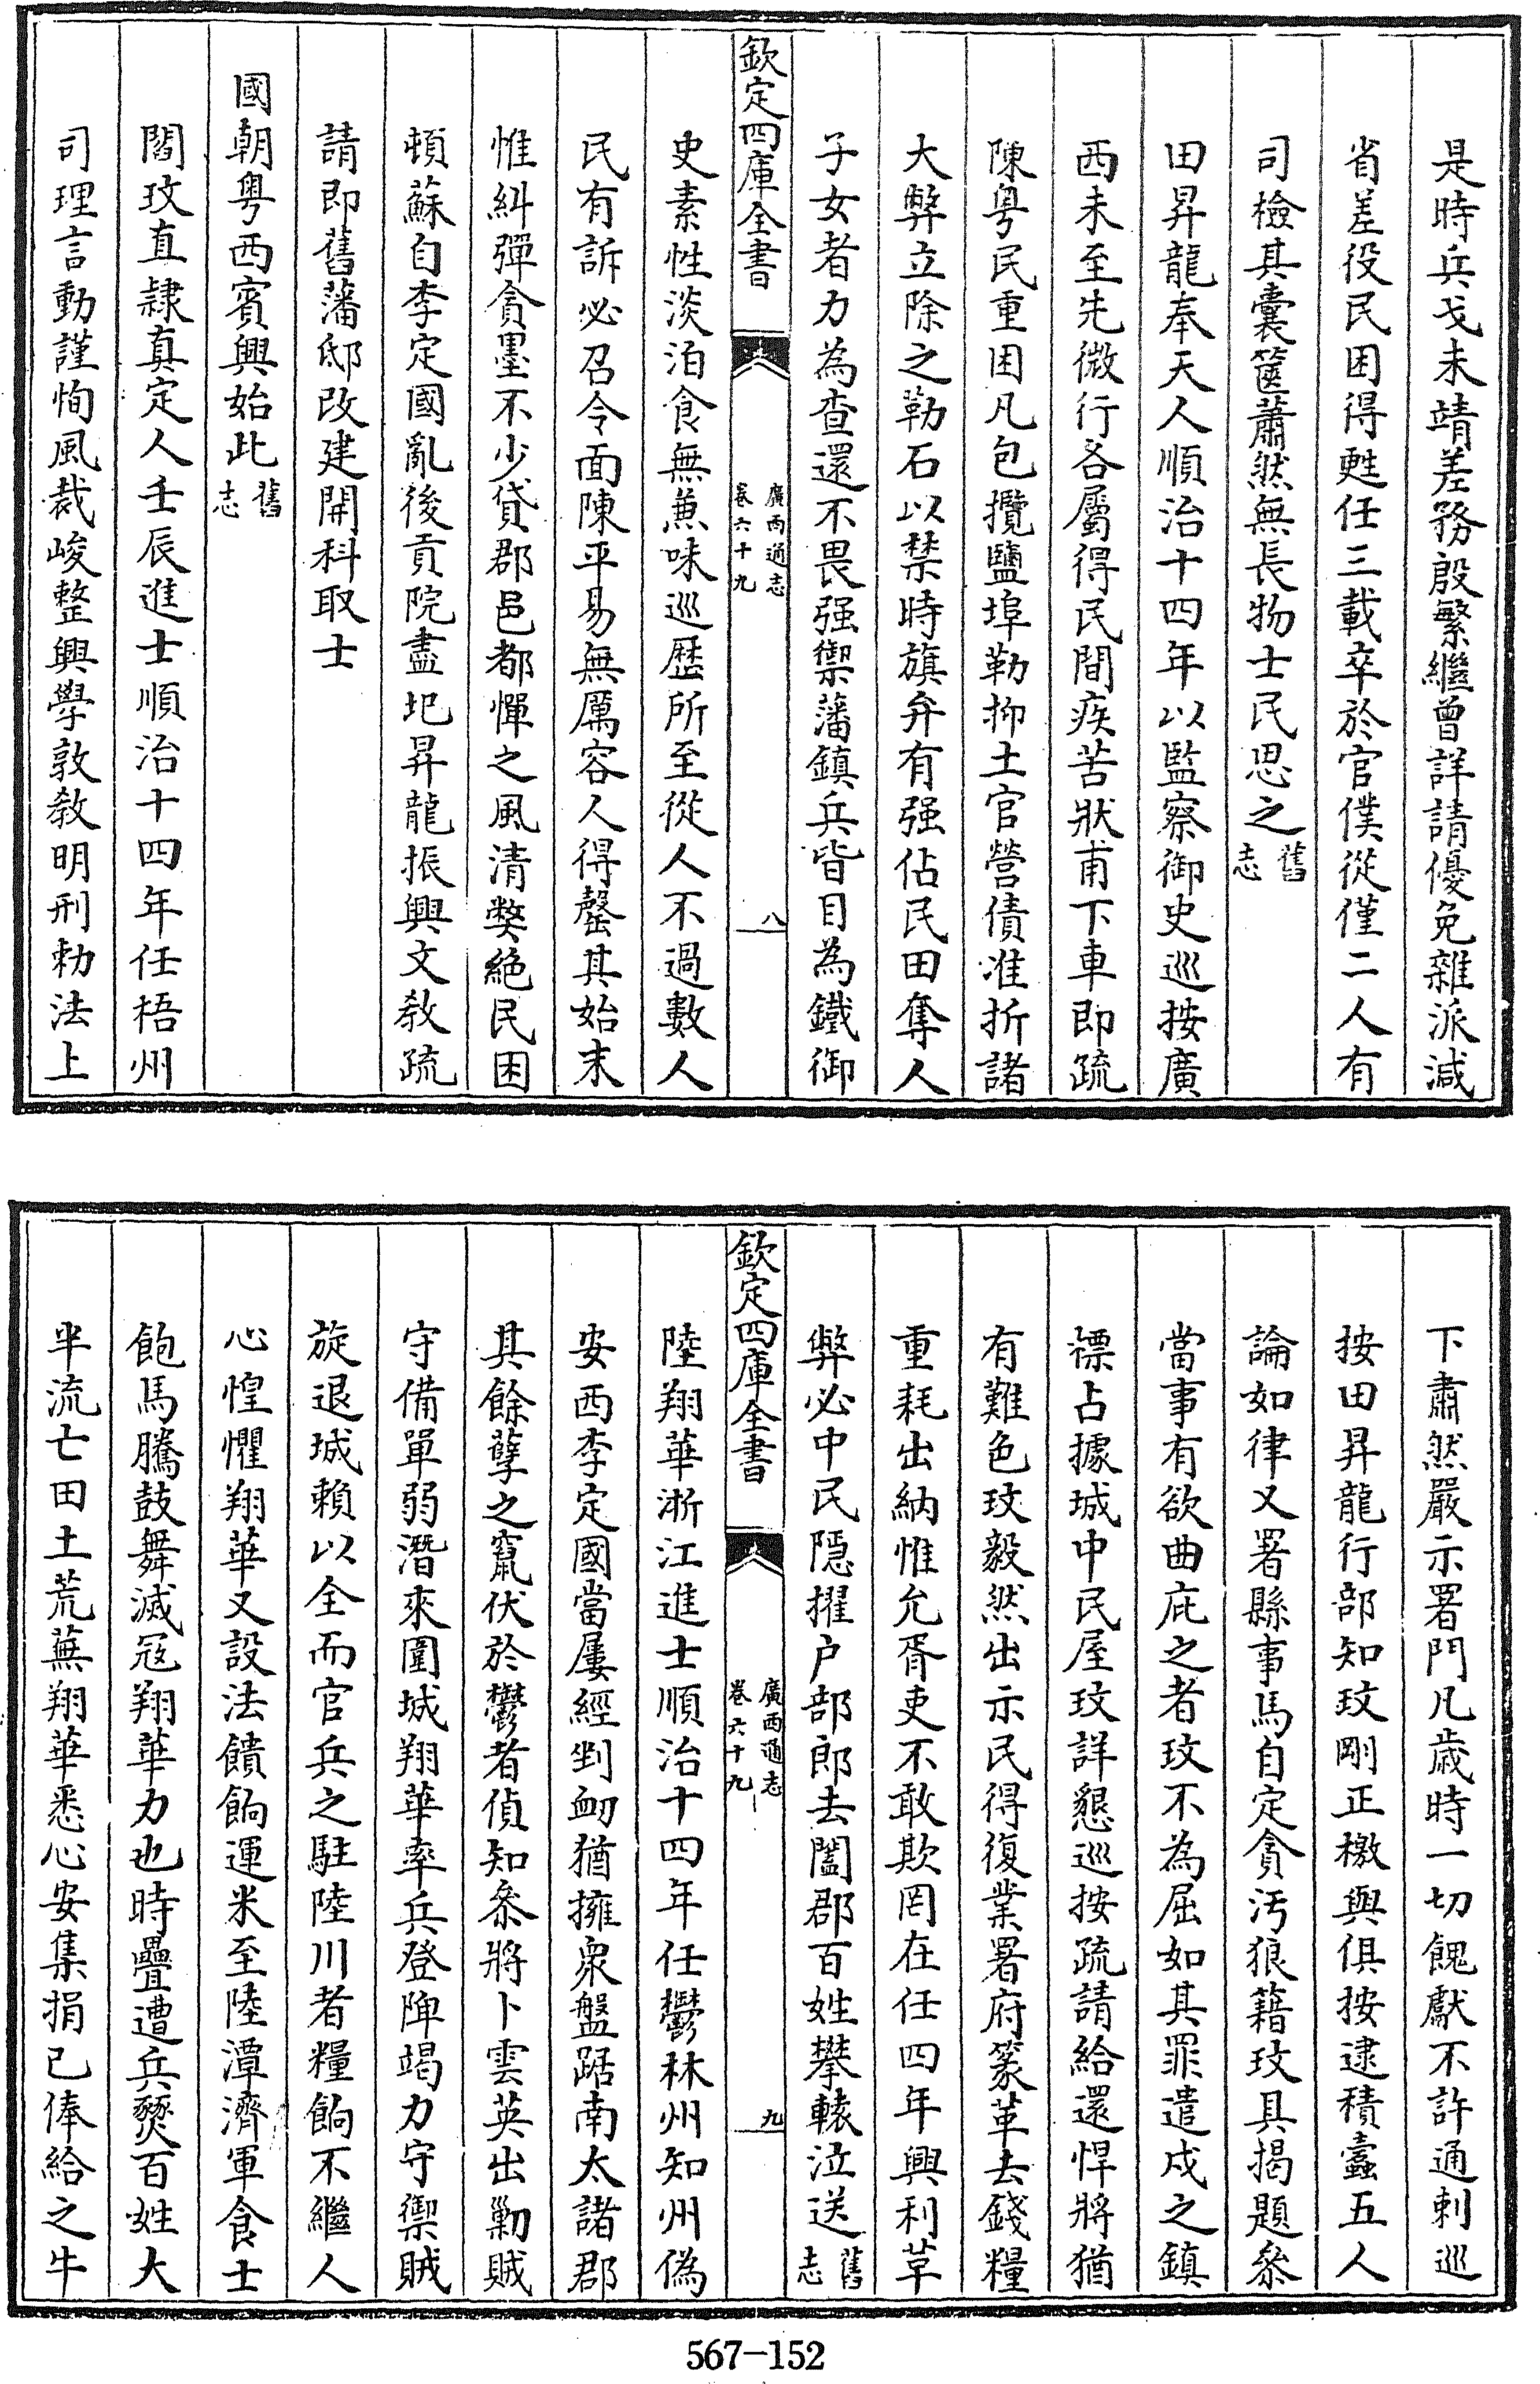 是時兵戈未靖差務殷繁繼曾詳請優免雜派減
省差役民困得甦任三載卒於官僕從僅二人有
司檢其囊篋蕭然無長物士民思之舊志
田昇龍奉天人順治十四年以監察御史巡按廣
西未至先微行各屬得民間疾苦狀甫下車即疏
陳粤民重困凡包攬鹽埠勒抑土官營債准折諸
大弊立除之勒石以禁時旗弁有强佔民田奪人
子女者力為查還不畏强禦藩鎮兵皆目為鐵御
欽定四庫全書
廣西通志
卷六十九
八
史素性淡泊食無兼味巡歴所至從人不過數人
民有訴必召令面陳平易無厲容人得罄其始末
惟糾彈貪墨不少貸郡邑都憚之風清獘絶民困
頓蘇自李定國亂後貢院盡圮昇龍振興文教疏
請即舊藩邸改建開科取士
國朝粤西賓興始此舊志
閻玫直隷真定人壬辰進士順治十四年任梧州
司理言動謹恂風裁峻整興學敦教明刑勅法上
下肅然嚴示署門凡歲時一切餽獻不許通剌巡
按田昇龍行部知玫剛正檄與俱按逮積蠹五人
論如律又署縣事馬自定貪汚狼籍玫具揭題叅
當事有欲曲庇之者玫不為屈如其罪遣戍之鎮
標占據城中民屋玫詳懇巡按疏請給還悍將猶
有難色玫毅然出示民得復業署府篆革去錢糧
重耗出納惟允胥吏不敢欺罔在任四年興利革
弊必中民隠擢户部郎去闔郡百姓攀轅泣送舊志
欽定四庫全書
廣西通志
卷六十九
九
陸翔華浙江進士順治十四年任鬱林州知州偽
安西李定國當屢經剉衂猶擁衆盤踞南太諸郡
其餘孽之竄伏於鬱者偵知叅將卜雲英出勦賊
守備單弱潛來圍城翔華率兵登陴竭力守禦賊
旋退城賴以全而官兵之駐陸川者糧餉不繼人
心惶懼翔華又設法饋餉運米至陸潭濟軍食士
飽馬騰鼓舞滅冦翔華力也時疊遭兵燹百姓大
半流亡田土荒蕪翔華悉心安集捐已俸給之牛
567-152